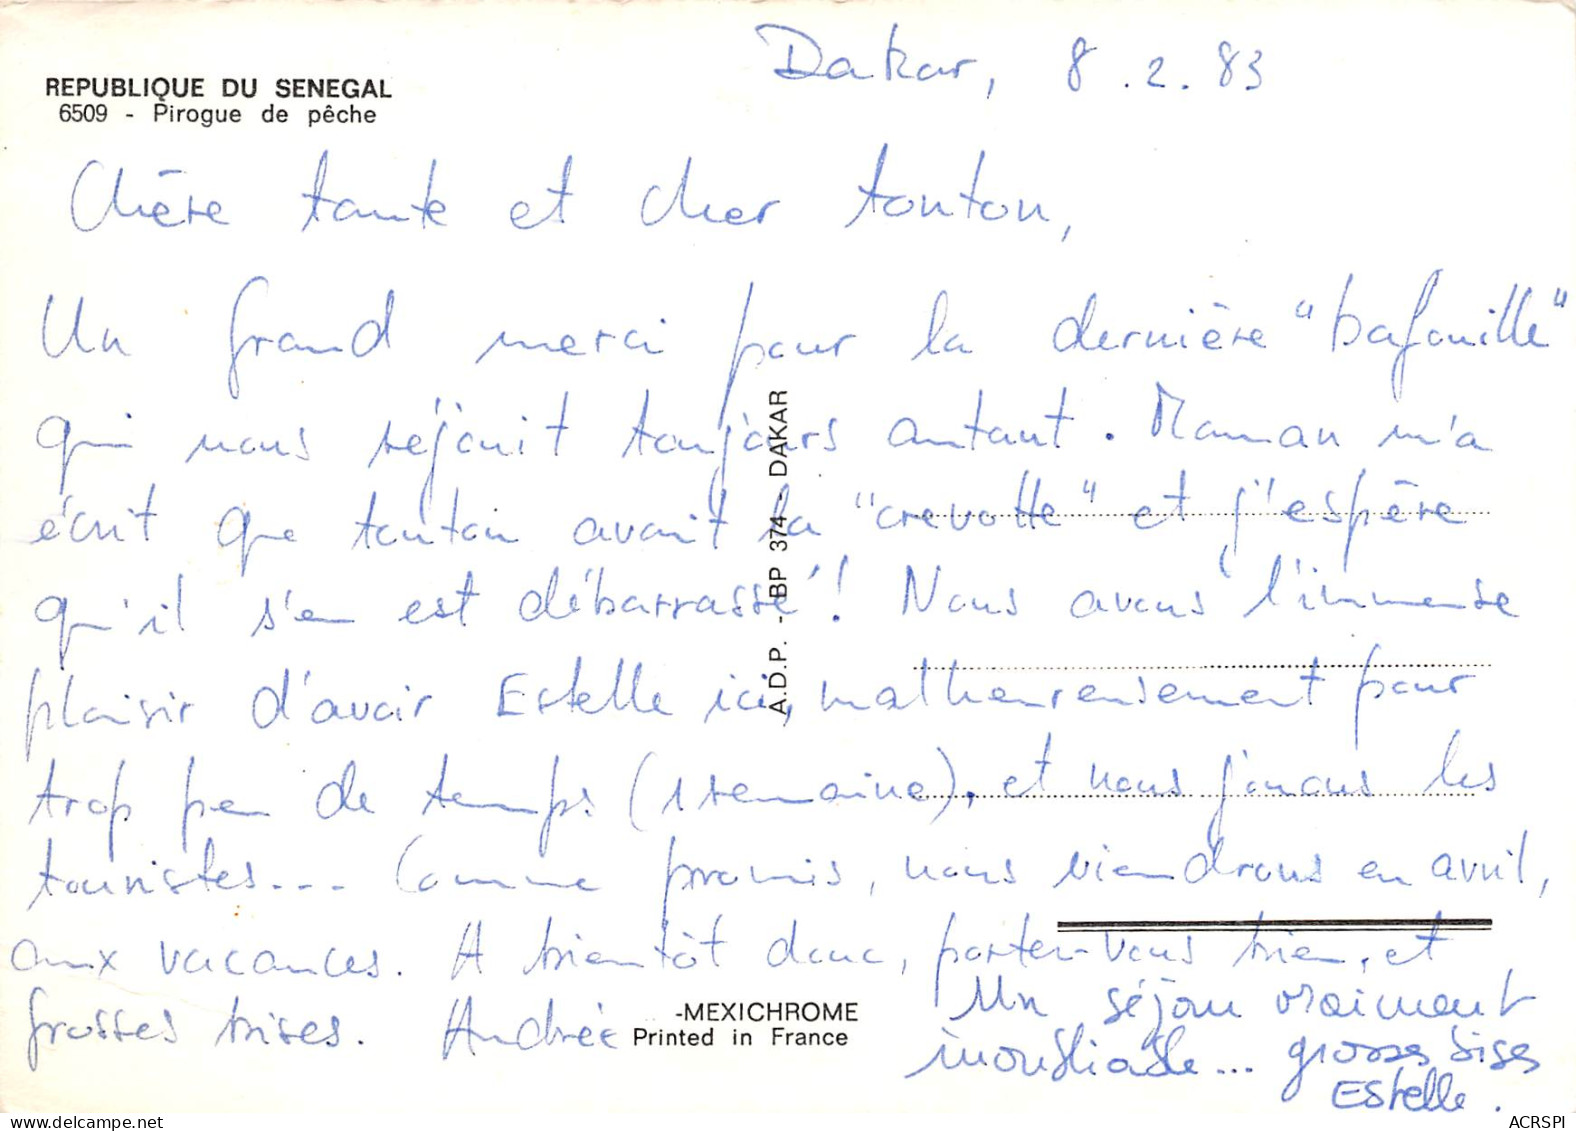 Dakar, 8.2.83
REPUBLIQUE DU SENEGAL
6509 - Pirogue de pêche
Chère tante et cher tonton,
Un grand merci pour la dernière "bafouille"
qui nous réjouit toujours autant. Maman m'a
écrit que tonton avait la "crevotte" et j'espère
qu'il s'en est débarrassé! Nous avons l'immense
plaisir d'avoir Estelle ici, malheureusement pour
trop peu de temps (1 semaine), et nous jouons les
touristes... Comme promis, nous viendrons en avril,
aux vacances. A bientôt donc, portez-vous bien, et
grosses bises. Andrée
Un séjour vraiment
inoubliable... grosses bises
Estelle.
A.D.P. - BP 374 - DAKAR
-MEXICHROME
Printed in France
ACRSPI